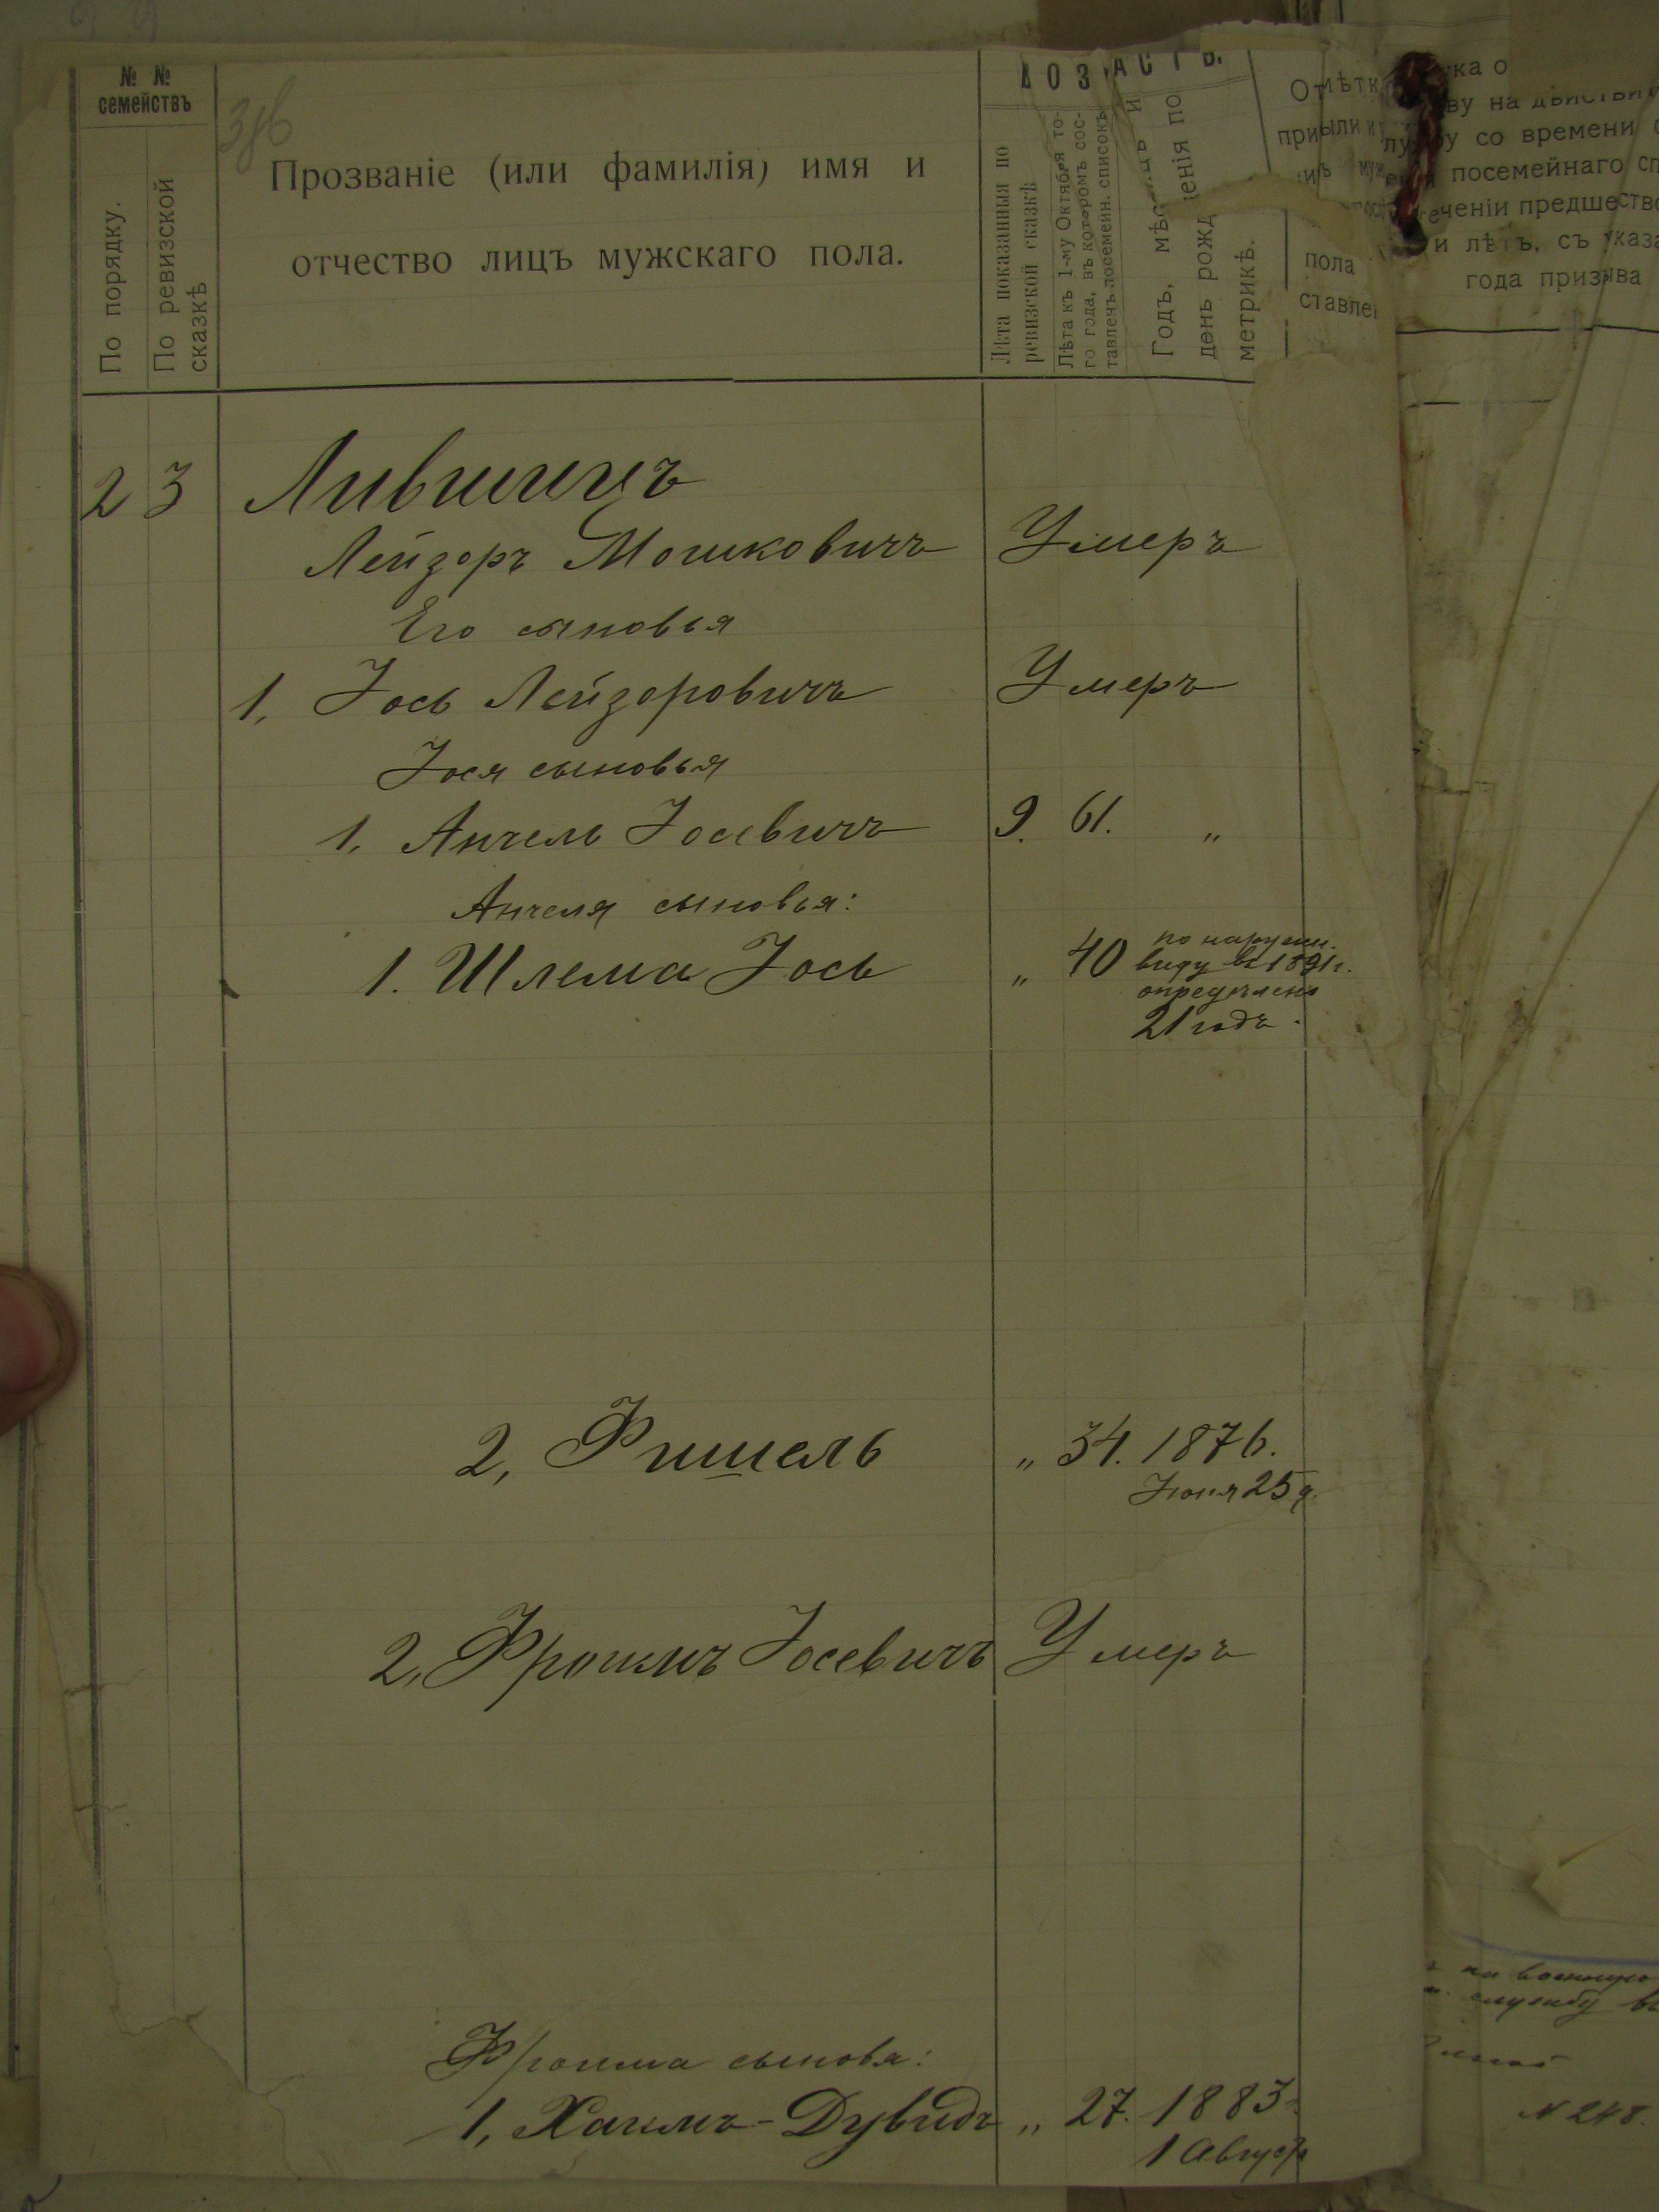 № №
семействъ
По порядку.
По ревизской
сказкѣ
Прозваніе (или фамилія) имя и
отчество лицъ мужскаго пола.
Лѣта показанныя по
ревизской сказкѣ
Лѣта къ 1-му Октября то-
го года, въ которомъ сос-
тавленъ посемейн. списокъ
Годъ, мѣсяцъ и
день рожденія по
метрикѣ.
пола
у со времени
посемейнаго
предшество
и лѣтъ, съ указа
года призыва
2 3 Лившицъ
Лейзоръ Мошковичъ Умеръ
Его сыновья
1, Іось Лейзоровичъ Умеръ
Іося сыновья
1, Анчель Іосевичъ 9. 61. „
Анчеля сыновья:
1. Шлема Іось „ 40 по наружн.
виду въ 1891 г.
опредѣлено
21 годъ.
2, Фишель „ 34. 1876.
Іюня 25 д.
2, Фроимъ Іосевичъ Умеръ
Фроима сыновья:
1, Хаимъ-Дувидъ „ 27. 1883
1 Август
на военную
службу
N 248.